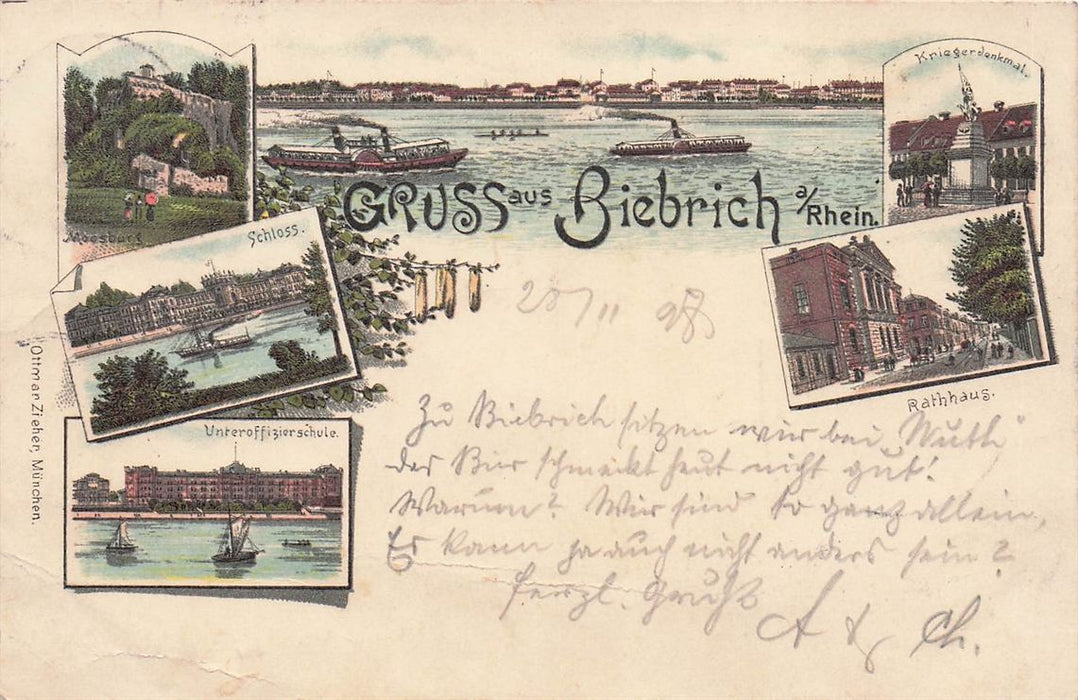 Mosburg
Kriegerdenkmal.
GRUSS aus Biebrich a/Rhein.
Schloss.
Rathhaus.
Unteroffizierschule.
Ottmar Zieher, München.
20/11 98
Zu Biebrich sitzen wir bei „Muth“
das Bier schmeckt heut nicht gut!
Warum? Wir sind so ganz allein,
Es kann ja auch nicht anders sein?
herzl. Gruß
A & Ch.